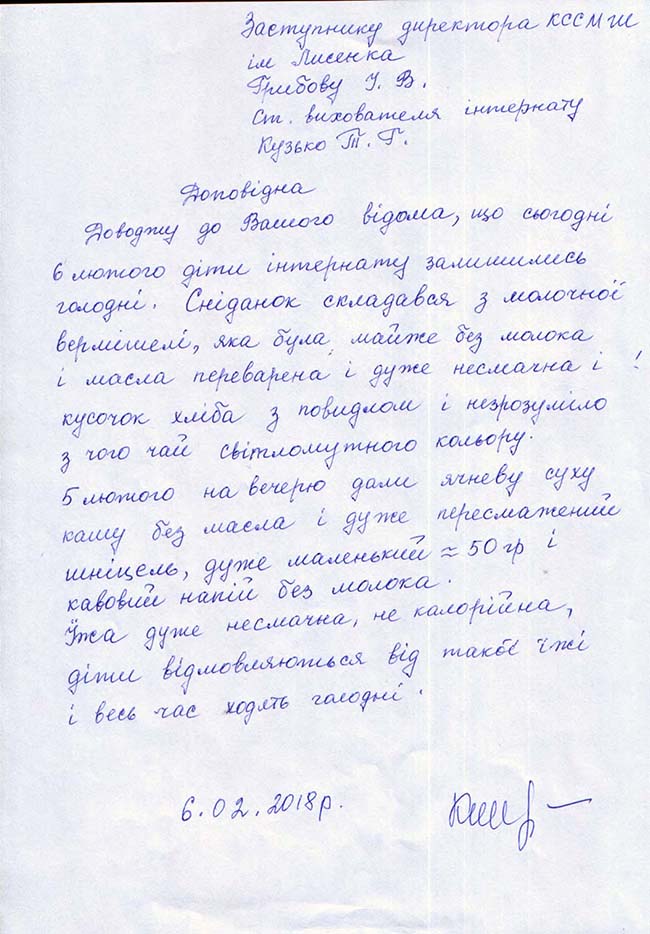 Заступнику директора КССМШ
ім Лисенка
Грибову І. В.
Ст. вихователя інтернату
Кузько Т. Г.
Доповідна
Доводжу до Вашого відома, що сьогодні
6 лютого діти інтернату залишились
голодні. Сніданок складався з молочної
вермішелі, яка була майже без молока
і масла переварена і дуже несмачна і !
кусочок хліба з повидлом і незрозуміло
з чого чай світломутного кольору.
5 лютого на вечерю дали ячневу суху
кашу без масла і дуже пересмажений
шніцель, дуже маленький ≈ 50 гр і
кавовий напій без молока.
Їжа дуже несмачна, не калорійна,
діти відмовляються від такої їжі
і весь час ходять голодні.
6.02.2018р.